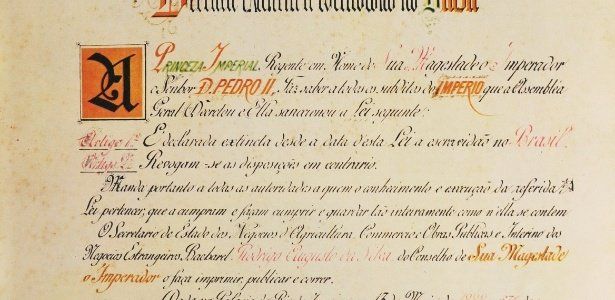 Declara extincta a escravidão no Brasil
A PRINCEZA IMPERIAL Regente em Nome de Sua Magestade o Imperador
o Senhor D. PEDRO II, Faz saber a todos os subditos do IMPERIO que a Assembléa
Geral Decretou e Ella sanccionou a Lei seguinte:
Artigo 1º É declarada extincta desde a data desta Lei a escravidão no Brasil.
Artigo 2º Revogam-se as disposições em contrario.
Manda portanto a todas as autoridades a quem o conhecimento e execução da referida
Lei pertencer, que a cumpram e façam cumprir e guardar tão inteiramente como n'ella se contem
O Secretario de Estado dos Negocios d'Agricultura, Commercio e Obras Publicas e Interino dos
Negocios Estrangeiros, Bacharel Rodrigo Augusto da Silva do Conselho de Sua Magestade
o Imperador o faça imprimir, publicar e correr.